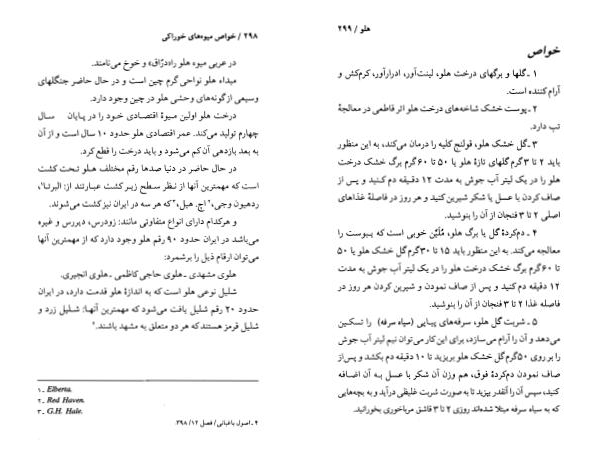 ۲۹۸ / خواص میوه‌های خوراکی
در عربی میوه هلو را «دُرّاق» و خوخ می‌نامند.
مبداء هلو نواحی گرم چین است و در حال حاضر جنگلهای
وسیعی از گونه‌های وحشی هلو در چین وجود دارد.
درخت هلو اولین میوهٔ اقتصادی خود را در پایان سال
چهارم تولید می‌کند. عمر اقتصادی هلو حدود ۱۰ سال است و از آن
به بعد بازدهی آن کم می‌شود و باید درخت را قطع کرد.
در حال حاضر در دنیا صدها رقم مختلف هلو تحت کشت
است که مهمترین آنها از نظر سطح زیر کشت عبارتند از: البرتا¹،
ردهیون وجی،² اچ. هیل،³ که هر سه در ایران نیز کشت می‌شوند.
و هرکدام دارای انواع متفاوتی مانند: زودرس، دیررس و غیره
می‌باشد در ایران حدود ۹۰ رقم هلو وجود دارد که از مهمترین آنها
می‌توان ارقام ذیل را برشمرد:
هلوی مشهدی ـ هلوی حاجی کاظمی ـ هلوی انجیری.
شلیل نوعی هلو است که به اندازهٔ هلو قدمت دارد، در ایران
حدود ۲۰ رقم شلیل یافت می‌شود که مهمترین آنها: شلیل زرد و
شلیل قرمز هستند که هر دو متعلق به مشهد باشند.⁴
۱ ـ Elberta.
۲ ـ Red Haven.
۳ ـ G.H. Hale.
۴ ـ اصول باغبانی / فصل ۱۲ / ۳۹۸.
هلو / ۲۹۹
خواص
۱ ـ گلها و برگهای درخت هلو، لینت‌آور، ادرارآور، کرم‌کش و
آرام کننده است.
۲ ـ پوست خشک شاخه‌های درخت هلو اثر قاطعی در معالجهٔ
تب دارد.
۳ ـ گل خشک هلو، قولنج کلیه را درمان می‌کند، به این منظور
باید ۲ تا ۳ گرم گلهای تازهٔ هلو یا ۵۰ تا ۶۰ گرم برگ خشک درخت
هلو را در یک لیتر آب جوش به مدت ۱۲ دقیقه دم کنید و پس از
صاف کردن با عسل یا شکر شیرین کنید و هر روز در فاصلهٔ غذاهای
اصلی ۲ تا ۳ فنجان از آن را بنوشید.
۴ ـ دم‌کردهٔ گل یا برگ هلو، مُلیّن خوبی است که یبوست را
معالجه می‌کند. به این منظور باید ۱۵ تا ۳۰ گرم گل خشک هلو یا ۵۰
تا ۶۰ گرم برگ خشک درخت هلو را در یک لیتر آب جوش به مدت
۱۲ دقیقه دم کنید و پس از صاف نمودن و شیرین کردن هر روز در
فاصله غذا ۲ تا ۳ فنجان از آن را بنوشید.
۵ ـ شربت گل هلو، سرفه‌های پیاپی (سیاه سرفه) را تسکین
می‌دهد و آن را آرام می‌سازد، برای این کار می‌توان نیم لیتر آب جوش
را بر روی ۵۰ گرم گل خشک هلو بریزید تا ۱۰ دقیقه دم بکشد و پس از
صاف نمودن دم‌کردهٔ فوق، هم وزن آن شکر یا عسل به آن اضافه
کنید، سپس آن را آنقدر بپزید تا به صورت شربت غلیظی درآید و به بچه‌هایی
که به سیاه سرفه مبتلا شده‌اند روزی ۲ تا ۳ قاشق مرباخوری بخورانید.